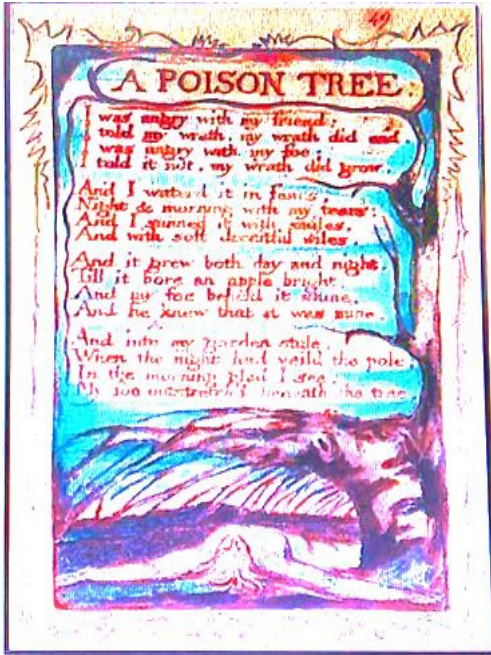 49
A POISON TREE.
I was angry with my friend;
I told my wrath, my wrath did end.
I was angry with my foe:
I told it not, my wrath did grow.
And I waterd it in fears,
Night & morning with my tears:
And I sunned it with smiles,
And with soft deceitful wiles.
And it grew both day and night,
Till it bore an apple bright.
And my foe beheld it shine,
And he knew that it was mine.
And into my garden stole,
When the night had veild the pole
In the morning glad I see,
My foe outstretchd beneath the tree